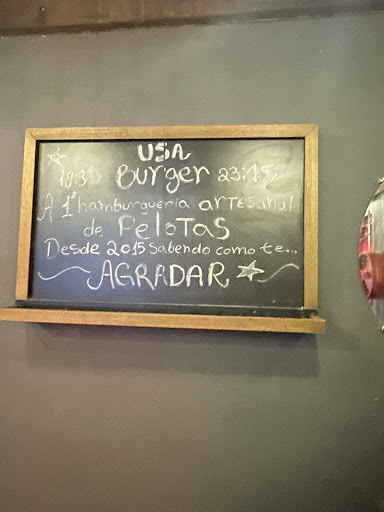 USA
Burger 23:45
A 1ª hamburgueria artesanal
de Pelotas
Desde 2015 Sabendo como te...
AGRADAR